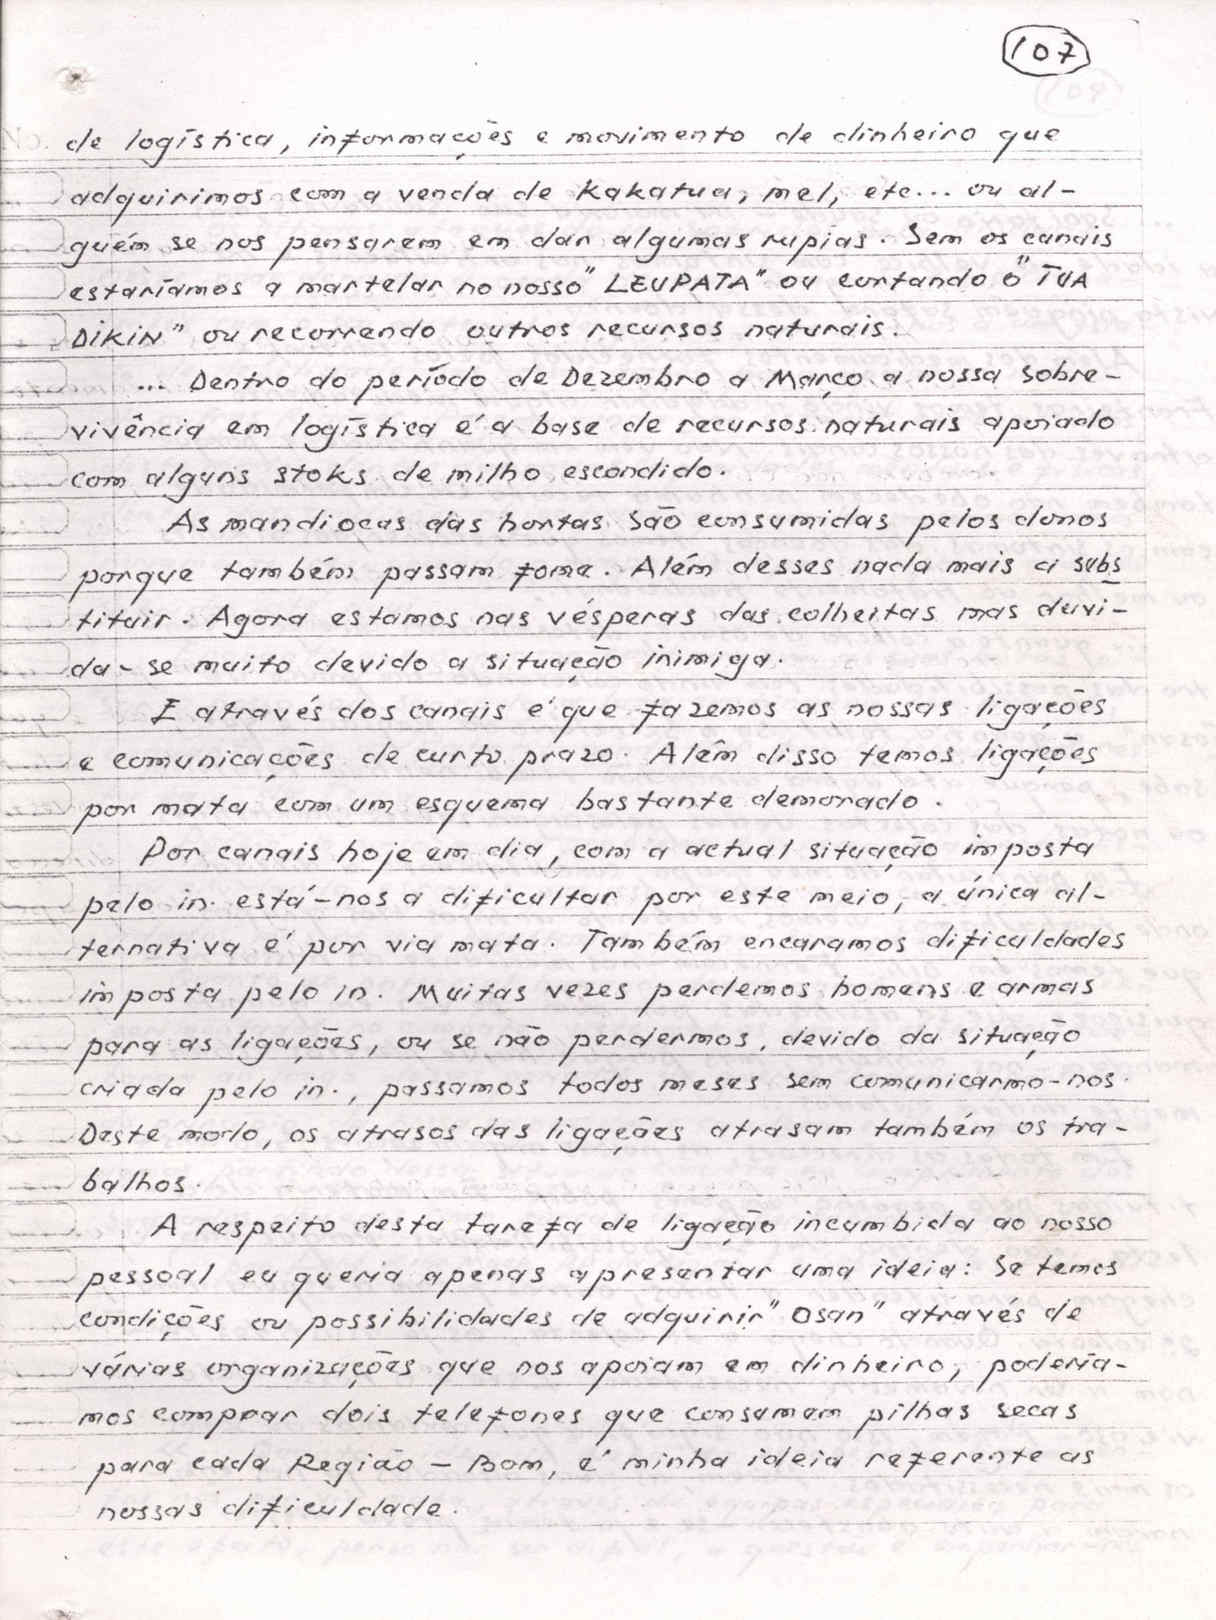 107
de logística, informações e movimento de dinheiro que
adquirimos com a venda de Kakatua, mel, etc... ou al-
guém se nos pensarem em dar algumas rupias. Sem os canais
estaríamos a martelar no nosso "LEUPATA" ou cortando o "TUA
DIKIN" ou recorrendo outros recursos naturais.
... Dentro do período de Dezembro a Março a nossa sobre-
vivência em logística é a base de recursos naturais apoiado
com alguns stoks de milho escondido.
As mandiocas das hortas são consumidas pelos donos
porque também passam fome. Além desses nada mais a subs
tituir. Agora estamos nas vésperas das colheitas mas duvi-
da-se muito devido a situação inimiga.
E através dos canais é que fazemos as nossas ligações
e comunicações de curto prazo. Além disso temos ligações
por mata com um esquema bastante demorado.
Por canais hoje em dia, com a actual situação imposta
pelo in. está-nos a dificultar por este meio, a única al-
ternativa é por via mata. Também encaramos dificuldades
imposta pelo in. Muitas vezes perdemos homens e armas
para as ligações, ou se não perdermos, devido da situação
criada pelo in., passamos todos meses sem comunicarmo-nos.
Deste modo, os atrasos das ligações atrasam também os tra-
balhos.
A respeito desta tarefa de ligação incumbida ao nosso
pessoal eu queria apenas apresentar uma ideia: Se temos
condições ou possibilidades de adquirir "Osan" através de
várias organizações que nos apoiam em dinheiro, podería-
mos comprar dois telefones que consumem pilhas secas
para cada Região - Bom, é minha ideia referente as
nossas dificuldade.